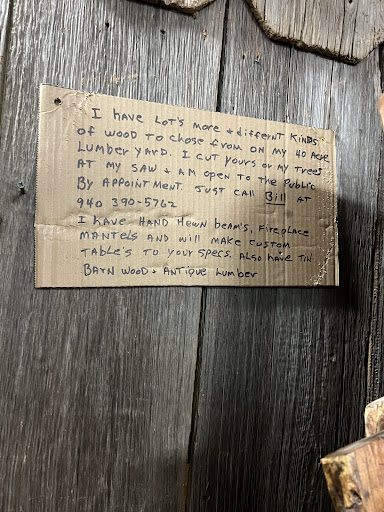 I HAVE LOT'S MORE + DIFFERNT KINDS
OF WOOD TO CHOSE FROM ON MY 40 ACRE
LUMBER YARD. I CUT YOURS OR MY TREES
AT MY SAW + AM OPEN TO THE PUBLIC
BY APPOINTMENT. JUST CALL Bill AT
940 390-5762
I HAVE HAND HEWN BEAM'S, FIREPLACE
MANTELS AND WILL MAKE CUSTOM
TABLE'S TO YOUR SPECS. ALSO HAVE TIN
BARN WOOD + ANTIQUE LUMBER